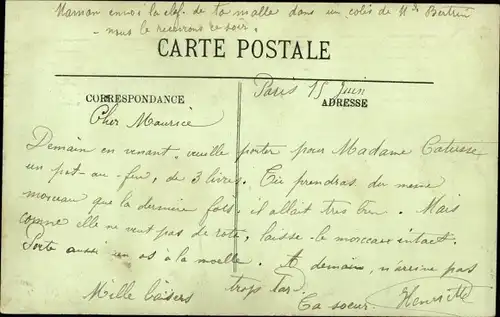 Maman envoi la clef de ta malle dans un colis de
- nous le recevrons ce soir.
CARTE POSTALE
Paris 15 Juin
CORRESPONDANCE
ADRESSE
Cher Maurice
Demain en venant, veuille porter pour Madame
un pot-au-feu, de 3 livres. Tu prendras du meme
morceau que la derniere fois, il allait tres bien. Mais
comme elle ne veut pas de rote, laisse le morceau intact.
Porte aussi un os à la moelle. A demain, n'arrive pas
trop tard.
Mille baisers
Ta soeur Henriette